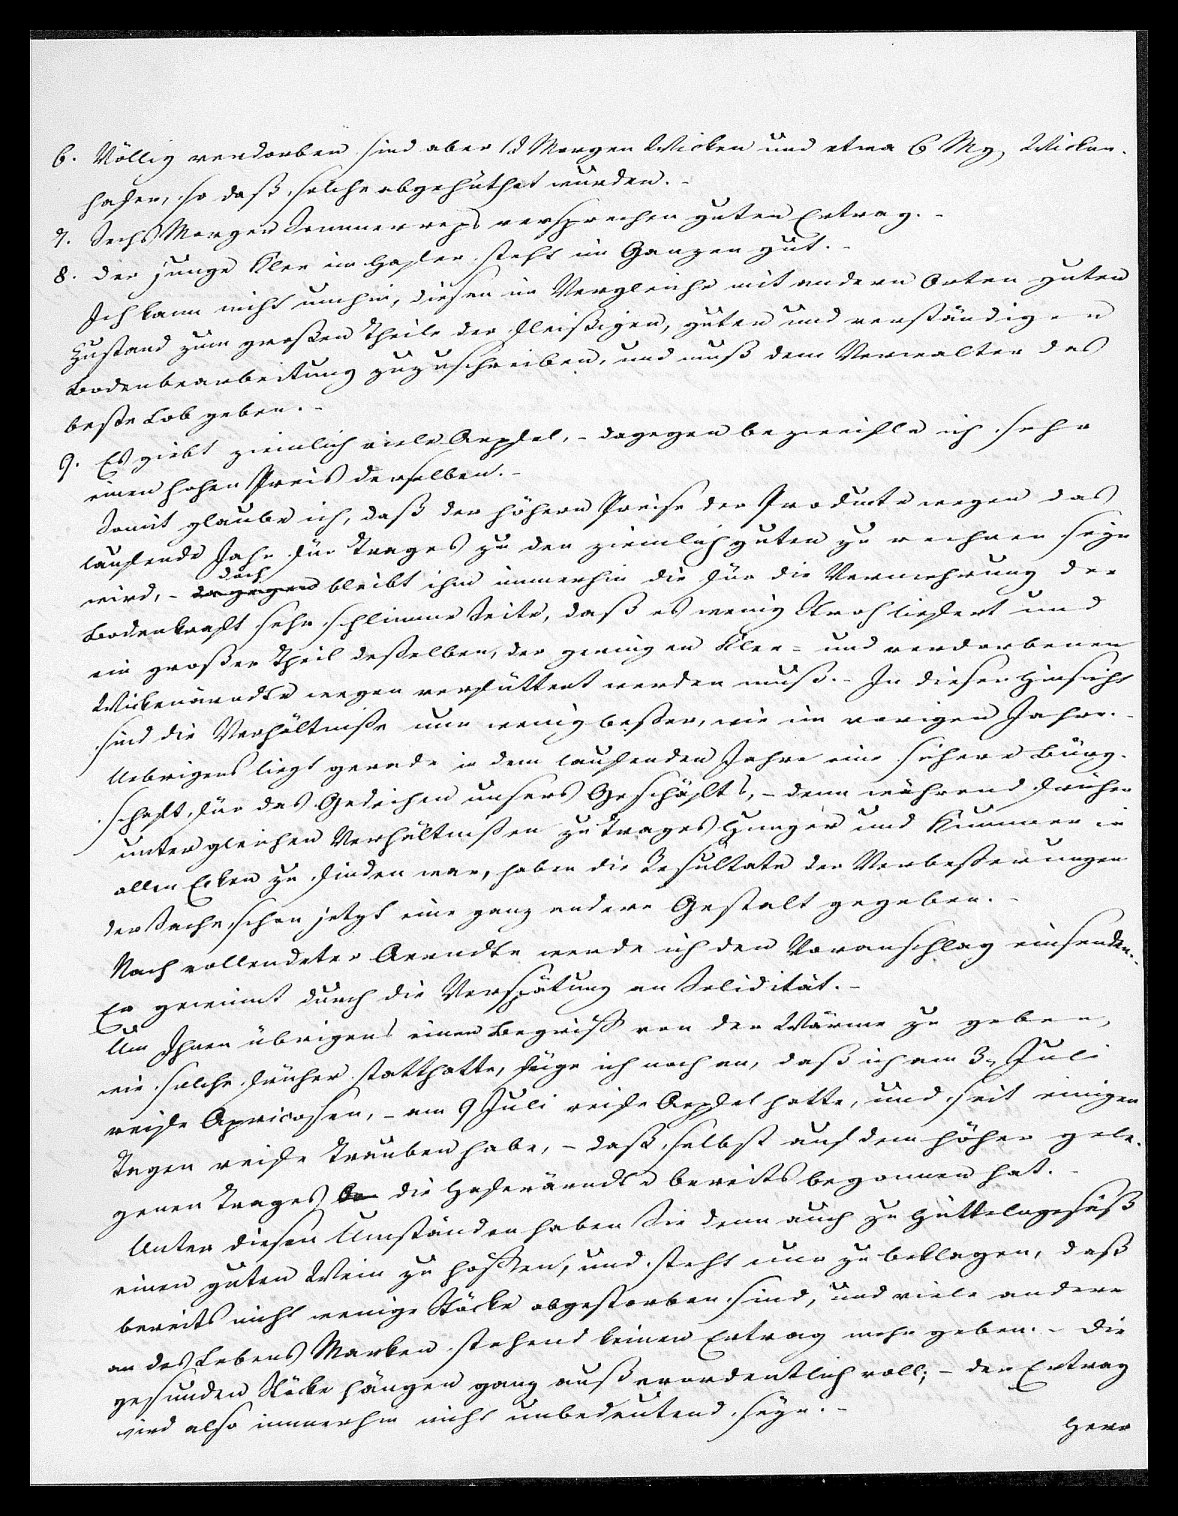 6. Völlig verdorben sind aber 12 Morgen Wicken und etwa 6 Mg, Wicken-
hafer, so daß solche abgehüthet wurden. -
7. Sechs Morgen Sommerreps versprechen guten Ertrag. -
8. Der junge Klee im Hafer steht im Ganzen gut. -
Ich kann nicht umhin, diesen im Vergleiche mit andern Orten guten
Zustand zum großen Theile der fleißigen, guten und verständigen
Bodenbearbeitung zuzuschreiben, und muß dem Verwalter das
beste Lob geben. -
9. Es giebt ziemlich viele Aepfel, - dagegen bezweifle ich sehr
einen hohen Preis derselben. -
Somit glaube ich, daß der höhern Preise der Producte wegen das
laufende Jahr für Trages zu den ziemlich guten zu rechnen seyn
doch
wird, - dagegen bleibt ihm immerhin die für die Vermehrung der
Bodenkraft sehr schlimme Seite, daß es wenig Stroh liefert und
ein großer Theil deßelben, der geringen Klee- und verdorbenen
Wickenärndte wegen verfüttert werden muß. - In dieser Hinsicht
sind die Verhältniße nur wenig beßer, wie im vorigen Jahre. -
Uebrigens liegt gerade in dem laufenden Jahre eine sichere Bürg-
schaft für das Gedeihen unsers Geschäfts, - denn während früher
unter gleichen Verhältnißen zu Trages Hunger und Kummer in
allen Ecken zu finden war, haben die Resultate der Verbeßerungen
der Sache schon jetzt eine ganz andere Gestalt gegeben. -
Nach vollendeter Aerndte werde ich den Voranschlag einsenden. -
Er gewinnt durch die Verspätung an Solidität. -
Um Ihnen übrigens einen Begriff von der Wärme zu geben,
wie solche früher statthatte, füge ich noch an, daß ich am 3. Juli
reife Apricosen, - am 9 Juli reife Aepfel hatte, und seit einigen
Tagen reife Trauben habe, - daß selbst auf dem höher gele-
genen Trages be die Haferärndte bereits begonnen hat. -
Unter diesen Umständen haben Sie denn auch zu Hüttelngesäß
einen guten Wein zu hoffen, und steht nur zu beklagen, daß
bereits nicht wenige Stöcke abgestorben sind, und viele andere
an des Lebens Marken stehend keinen Ertrag mehr geben. - Die
gesunden Stöcke hängen ganz außerordentlich voll; - der Ertrag
wird also immerhin nicht unbedeutend seyn. -
Herr